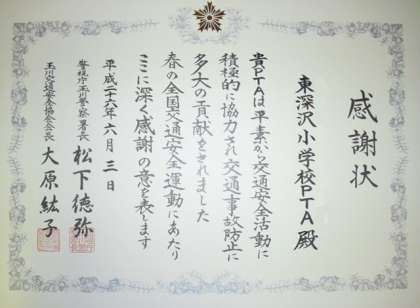 感謝状
東深沢小学校PTA殿
貴PTAは平素から交通安全活動に
積極的に協力され交通事故防止に
多大の貢献をされました
春の全国交通安全運動にあたり
ここに深く感謝の意を表します
平成二十六年六月三日
警視庁玉川警察署長 松下徳弥
玉川交通安全協会会長 大原紘子